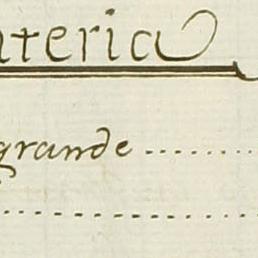 ateria
grande